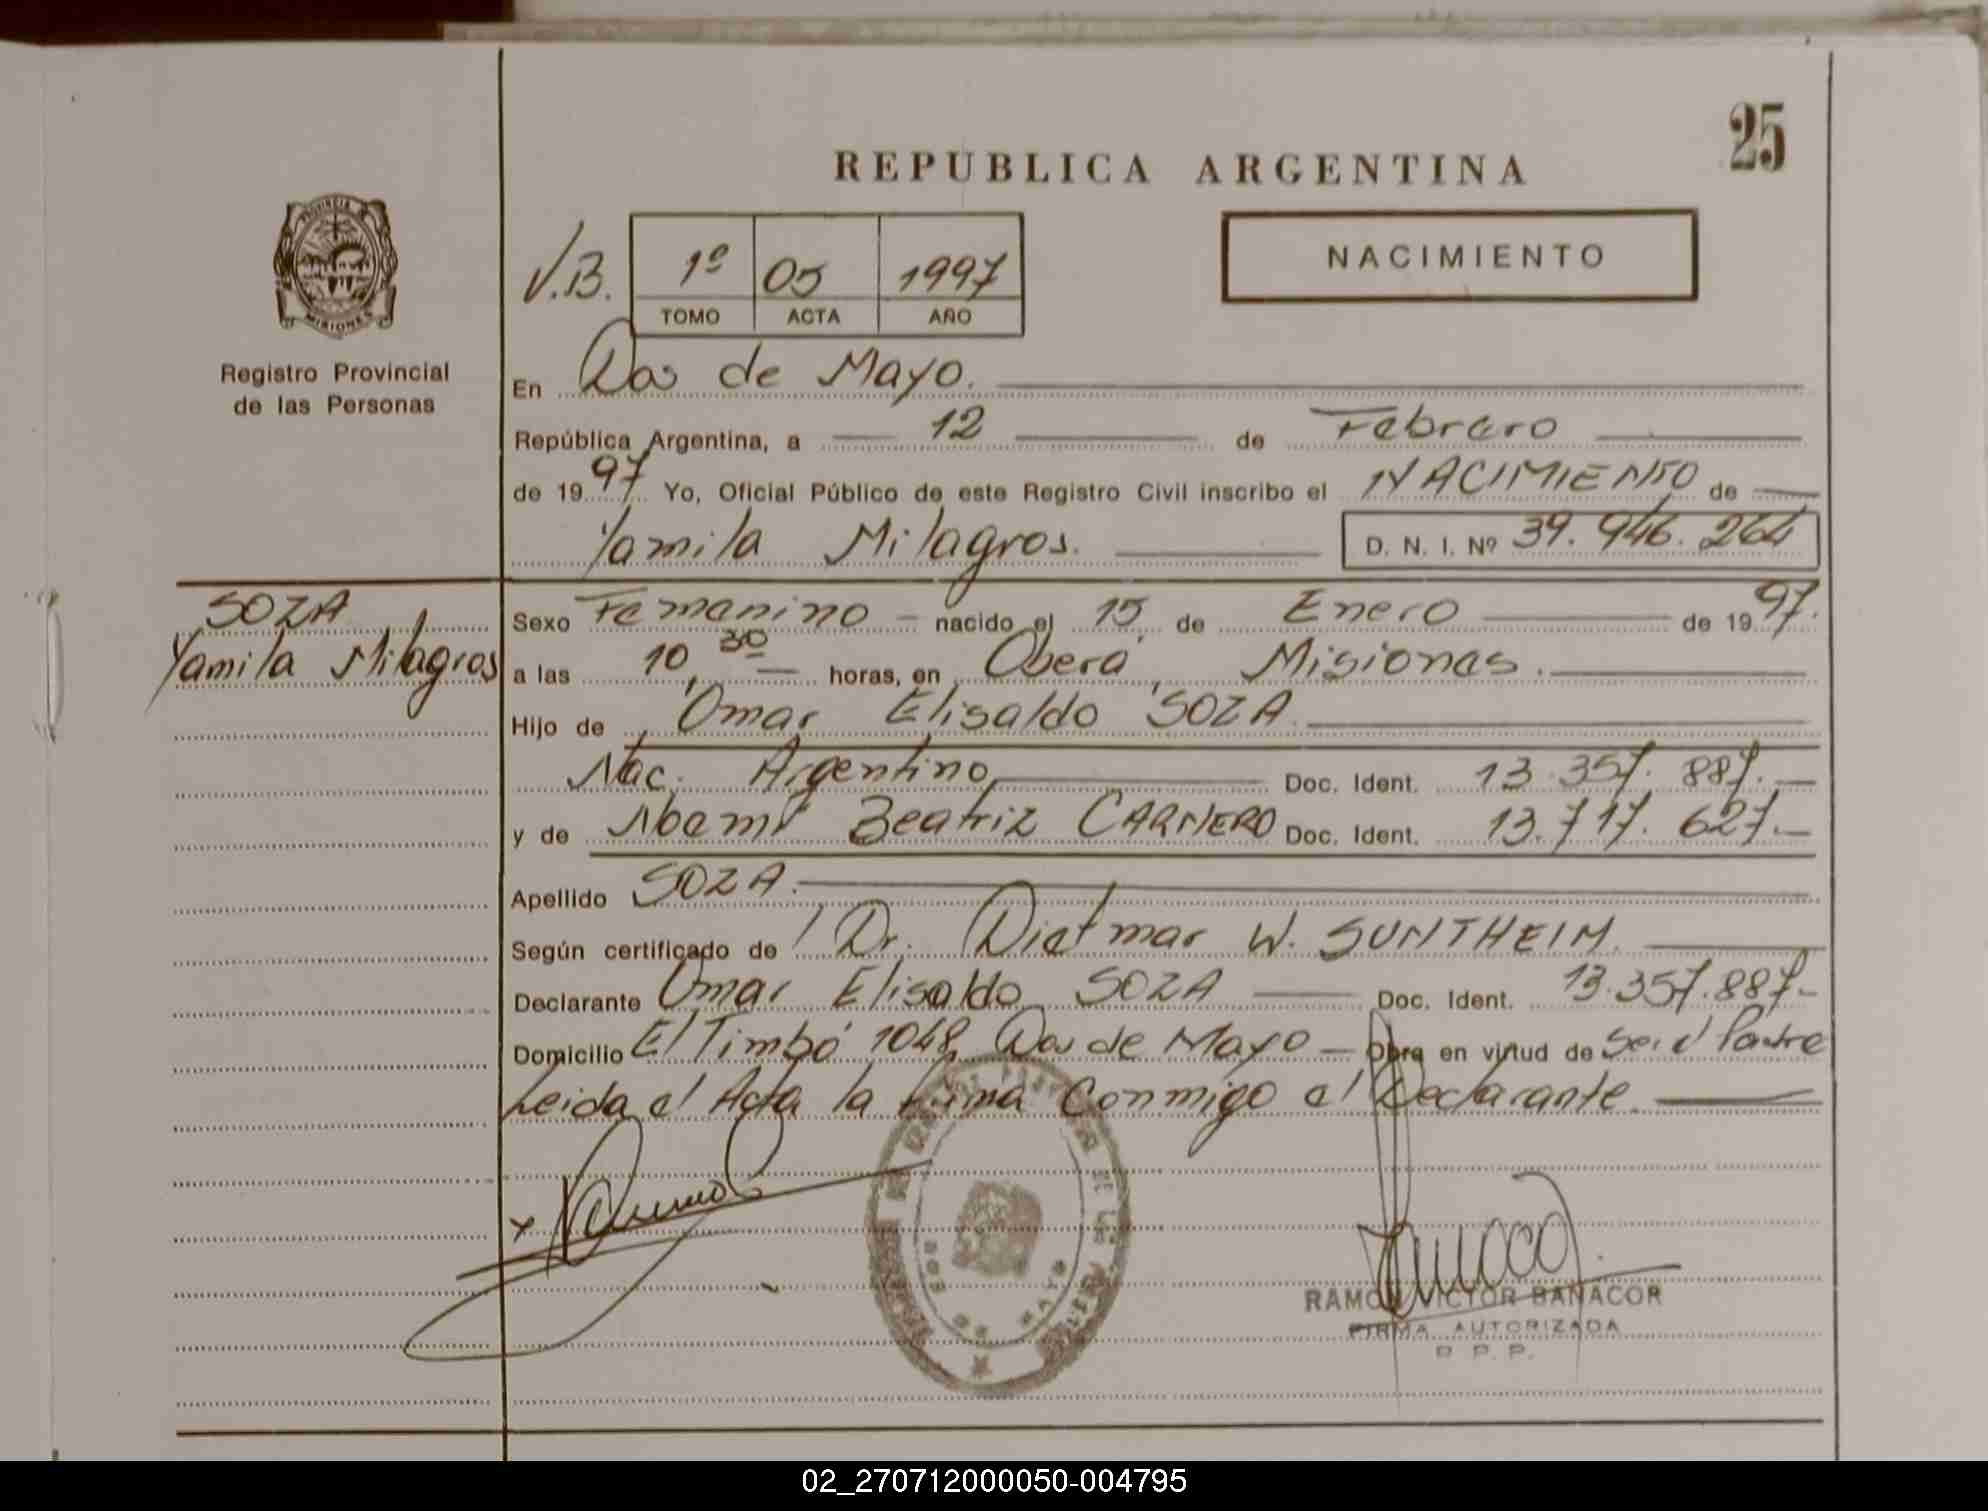 25
REPUBLICA ARGENTINA
PROVINCIA DE
MISIONES
Registro Provincial
de las Personas
V.B.
1º 05 1997
TOMO ACTA AÑO
NACIMIENTO
En Dos de Mayo.
República Argentina, a 12 de Febrero
de 1997 Yo, Oficial Público de este Registro Civil inscribo el NACIMIENTO de
Yamila Milagros. D. N. I. Nº 39.946.264
SOZA
Yamila Milagros
Sexo Femenino - nacido el 15 de Enero de 1997.
a las 10,30 horas, en Oberá, Misiones.
Hijo de Omar Elisaldo SOZA.
Nac. Argentino, Doc. Ident. 13.357.887.-
y de Noemí Beatriz CARNERO Doc. Ident. 13.717.627.-
Apellido SOZA.
Según certificado de Dr. Dietmar W. SUNTHEIM.
Declarante Omar Elisaldo SOZA Doc. Ident. 13.357.887-
Domicilio El Timbó 1048, Dos de Mayo - Obra en virtud de Ser el Padre
Leida el Acta la Firma Conmigo el Declarante.
x
DOS DE MAYO
RAMON VICTOR BANACOR
FIRMA AUTORIZADA
R. P. P.
02_270712000050-004795